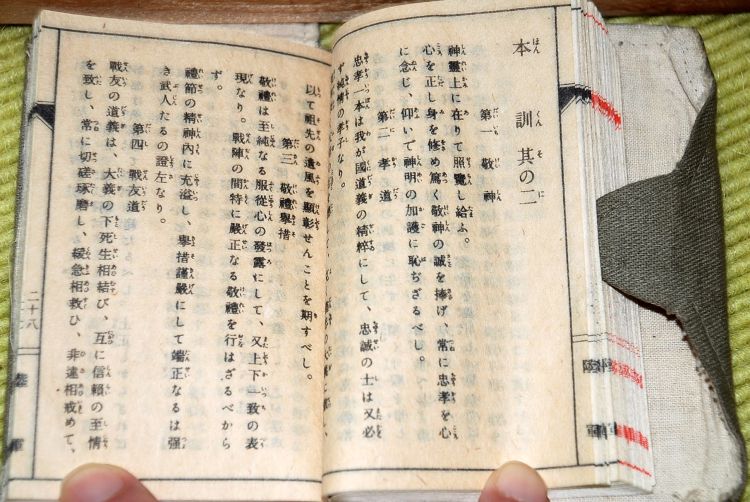 本訓 其の二
第一 敬神
神靈上に在りて照覽し給ふ。
心を正し身を修め篤く敬神の誠を捧げ、常に忠孝を心
に念じ、仰いで神明の加護に恥ぢざるべし。
第二 孝道
忠孝一本は我が國道義の精粹にして、忠誠の士は又必
ず純情の孝子なり。
以て祖先の遺風を顯彰せんことを期すべし。
第三 敬禮擧措
敬禮は至純なる服從心の發露にして、又上下一致の表
現なり。戰陣の間特に嚴正なる敬禮を行はざるべから
ず。
禮節の精神內に充溢し、擧措謹嚴にして端正なるは强
き武人たるの證左なり。
第四 戰友道
戰友の道義は、大義の下死生相結び、互に信賴の至情
を致し、常に切磋琢磨し、緩急相救ひ、非違相戒めて、
二十八